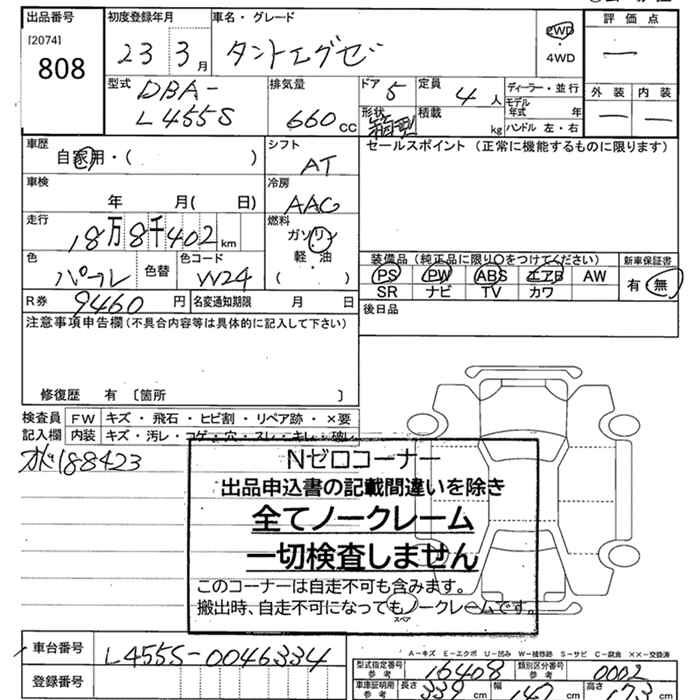 出品番号 初度登録年月 車名・グレード 評価点
[2074]
808
23 3月 タントエグゼ 2WD ・ 4WD —
型式 排気量 ドア 5 定員 4人 ディーラー・並行 外装 内装
DBA-
L455S 660cc 形状 箱型 積載 kg モデル年式 年 — —
ハンドル 左・右
車歴 シフト セールスポイント (正常に機能するものに限ります)
自家用・( ) AT
車検 冷房
年 月( 日) AAC
走行 燃料
18万8千402km ガソリン
色 色替 色コード 軽・油 装備品 (純正品に限り○をつけてください) 新車保証書
パール W24 ( ) PS PW ABS エアB AW 有・無
SR ナビ TV カワ
R券 9460円 名変通知期限 月 日 後日品
注意事項申告欄 (不具合内容等は具体的に記入して下さい)
修復歴 有 〔箇所 〕
検査員 FW キズ・飛石・ヒビ割・リペア跡・×要
記入欄 内装 キズ・汚レ・コゲ・穴・スレ・キレ・破レ
188423
Nゼロコーナー
出品申込書の記載間違いを除き
全てノークレーム
一切検査しません
このコーナーは自走不可も含みます。
搬出時、自走不可になってもノークレームです。
スペア
A-キズ E-エクボ U-凹み W-補修跡 S-サビ C-腐食 ××-交換済
車台番号 L455S-0046334
型式指定番号 参考 16408 類別区分番号 参考 0002
登録番号
車庫証明用 参考 長さ 339cm 幅 147cm 高さ 173cm